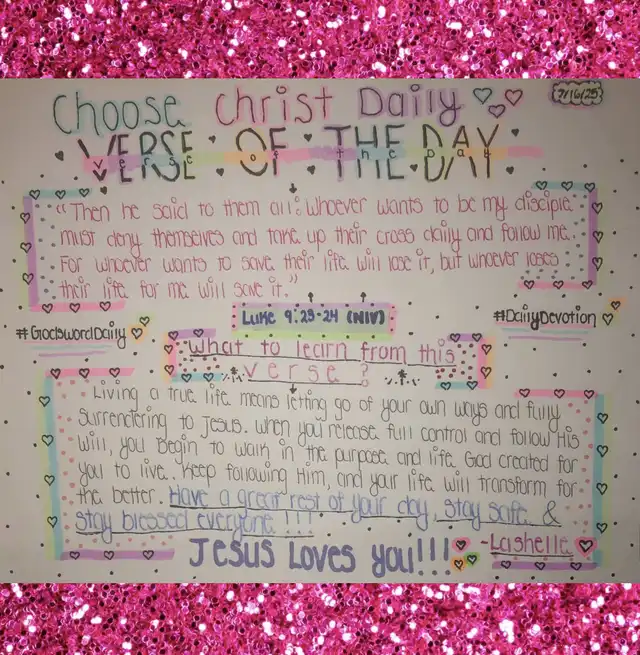 Choose Christ Daily
7/16/25
VERSE OF THE DAY
verse of the Day
"Then he said to them all: Whoever wants to be my disciple
must deny themselves and take up their cross daily and follow me.
For whoever wants to save their life will lose it, but whoever loses
their life for me will save it."
Luke 9:23-24 (NIV)
#GodsWordDaily
#DailyDevotion
What to learn from this
verse?
Living a true life means letting go of your own ways and fully
surrendering to Jesus. When you release full control and follow His
will, you begin to walk in the purpose and life God created for
you to live. Keep following Him, and your life will transform for
the better. Have a great rest of your day, stay safe &
stay blessed everyone!!!
Jesus Loves you!!!
-Lashelle